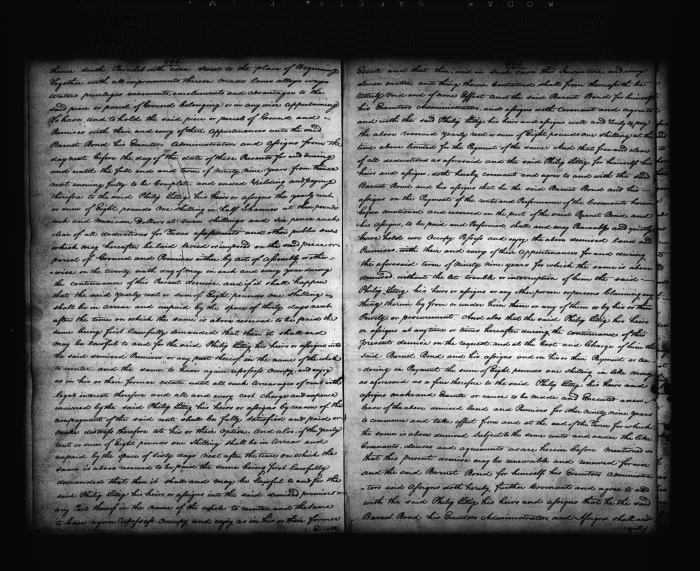 thence South Parallel with eden Street to the place of Beginning
Together with all improvements thereon made lanes alleys ways
waters privileges easements, emoluments and advantages to the
said piece or parcel of Ground belonging or in any wise appertaining
To have and to hold the said piece or parcel of Ground and
Premises with their and every of their appurtenances unto the said
Barnet Bond his Executors Administrators and assigns from the
day next before the day of the date of these Presents for and during
and until the full end and term of Ninety nine years from thence
next ensuing fully to be Complete and ended Yielding and paying
therefore to the said Philip Littig his heirs or assigns the yearly rent
or sum of Eight pounds One Shilling in half Johannes at three pounds
each and Mexican Dollars at seven shillings and six pence each
clear of all deductions for Taxes assessments and other public dues
which may hereafter be laid levied or imposed on the said piece or
parcel of Ground and Premises either by act of Assembly or other
wise on the twenty sixth day of May in each and every year during
the continuance of this Present demise and if it shall happen
that the said yearly rent or sum of Eight pounds one shilling
shall be in arrear and unpaid by the space of thirty days next
after the time on which the same is above reserved to be paid the
same being first Lawfully demanded that then it shall and
may be Lawful to and for the said Philip Littig his heirs or assigns into
the said demised Premises or any part thereof in the name of the whole
to reenter and the same to have again repossess occupy and enjoy
as in his or their former estate until all such arrearages of rent with
legal interest thereon and all and every cost charge and expence
incurred by the said Philip Littig his heirs or assigns by reason of the
nonpayment of the said rent shall be fully satisfied and paid or
make distress therefore at his or their Option And also if the yearly
rent or sum of Eight pounds one Shilling shall be in Arrear and
unpaid by the space of sixty days next after the time on which the
same is above reserved to be paid the same being first lawfully
demanded that then it shall and may be Lawful to and for the
said Philip Littig his heirs or assigns into the said demised premises or
any Part thereof in the name of the whole to reenter and the same
to have again Repossess Occupy and enjoy as in his or their former
Estate and that then and in such case this Indenture and every
clause matter and thing herein Contained shall from thenceforth be
utterly Void and of none Effect and the said Barnet Bond for himself
his Executors Administrators and assigns doth Covenant and agree to
and with the said Philip Littig his heirs and assigns well and truly to pay
the above reserved yearly rent or sum of Eight pounds one shilling at the
time above limited for the Payment of the same And that free and clear
of all deductions as aforesaid and the said Philip Littig for himself his
heirs and assigns doth hereby covenant and agree to and with the said
Barnet Bond and his assigns that he the said Barnet Bond and his
assigns on the Payment of the rents and Performance of the Covenants herein
before mentioned and reserved on the part of the said Barnet Bond and
his assigns to be paid and Performed shall and may Peaceably and quietly
have hold use Occupy Possess and enjoy the above demised Land and
Premises with their and every of their Appurtenances for and during
the aforesaid term of Ninety nine years for which the same is above
demised without the let trouble or interruption of him the said
Philip Littig his heirs or assigns or any other person or persons
thing therein by from or under him them or any of them or by his or their
Privity or procurement. And also that the said Philip Littig his heirs
or assigns at any time or times hereafter during the continuance of this
present demise on the request and at the Cost and Charge of him the
said Barnet Bond and his assigns and on his or their Payment or ten
dering in Payment the sum of Eight pounds one shilling in like money
as aforesaid as a fine therefore to the said Philip Littig his heirs and
assigns make and Execute or cause to be made and Executed a new
Lease of the above demised Land and Premises for other ninety nine years
to commence and take effect from and at the end of the Term for which
the same is above demised Subject to the same rents and under the like
Covenants clauses and agreements as are herein before Mentioned so
that this present demise may be renewable and renewed for ever
and the said Barnet Bond for himself his Executors Administra
tors and Assigns doth hereby further Covenant and agree to and
with the said Philip Littig his heirs and assigns that he the said
Barnet Bond his Executors Administrators and Assigns shall and